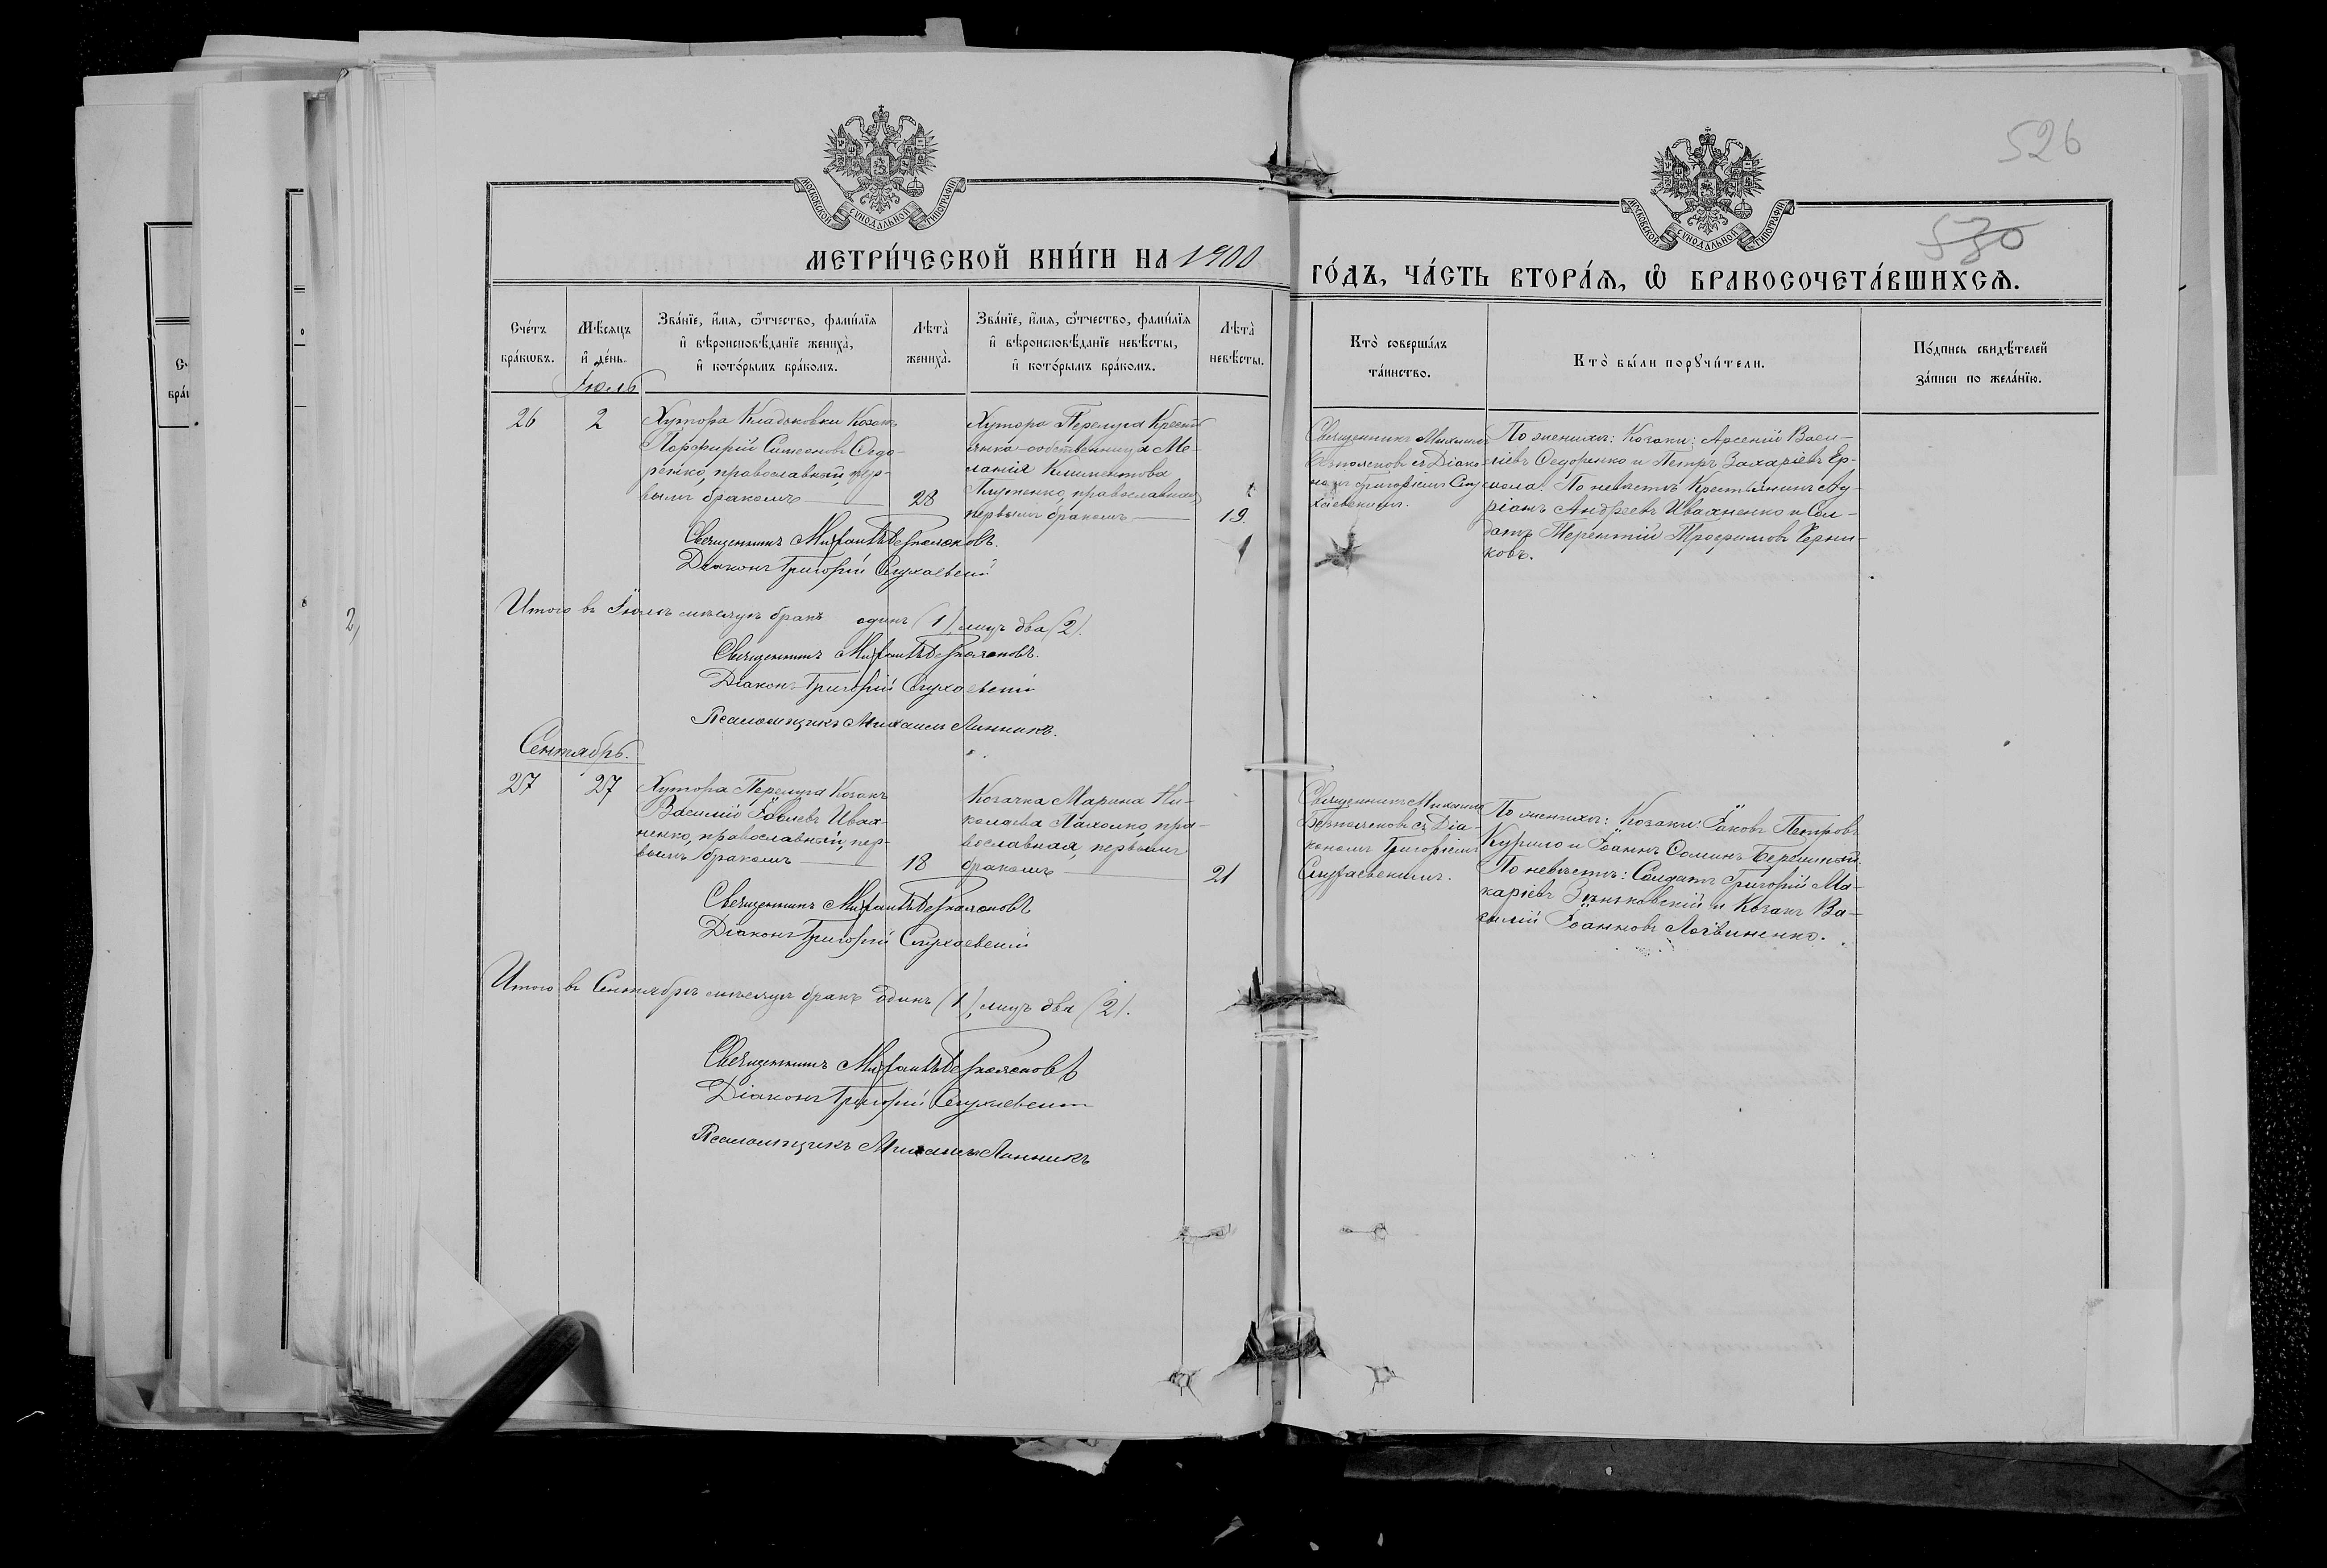 526
530
МОСКОВСКОЙ СѴНОДАЛЬНОЙ ТИПОГРАФІИ
МОСКОВСКОЙ СѴНОДАЛЬНОЙ ТИПОГРАФІИ
МЕТРИ́ЧЕСКОЙ КНИ́ГИ НА 1900
ГО́ДЪ, ЧА́СТЬ ВТОРА́Ѧ, Ѽ БРАКОСОЧЕТА́ВШИХСѦ.
Сче́тъ бра́кѡвъ.
Мѣ́сѧцъ и҆ де́нь.
Зва́нїе, и҆́мѧ, ѻ҆́тчество, фами́лїѧ
и҆ вѣроисповѣ́данїе жениха̀,
и҆ кото́рымъ бра́комъ.
Лѣта̀ жениха̀.
Зва́нїе, и҆́мѧ, ѻ҆́тчество, фами́лїѧ
и҆ вѣроисповѣ́данїе невѣ́сты,
и҆ кото́рымъ бра́комъ.
Лѣта̀ невѣ́сты.
Кто̀ соверша́лъ та́инство.
Кто̀ бы́ли порꙋчи́тели.
По́дпись свидѣ́телей за́писи по жела́нїю.
Іюль
26
2
Хутора Кладьковки Козакъ
Порфирій Симеоновъ Ѳедо-
ренко, православный, пер-
вымъ бракомъ
28
Хутора Перелуга Кресть
янка-собственница Ме-
ланія Климентова
православная,
первымъ бракомъ
19
Священникъ Михаилъ
Безполоновъ съ Діако-
номъ Григоріемъ Слу
хаевскимъ.
По женихѣ: Козаки: Арсеній Васи-
ліевъ Ѳедоренко и Петръ Захаріевъ Ер-
мола. По невѣстѣ Крестьянинъ Ау-
ріанъ Андреевъ Ивахненко и Сол-
датъ Терентій Трофимовъ Черни-
ковъ.
Священникъ Михаилъ Безполоновъ.
Діаконъ Григорій Слухаевскій
Итого въ Іюлѣ мѣсяцѣ бракъ одинъ (1), лицъ два (2).
Священникъ Михаилъ Безполоновъ.
Діаконъ Григорій Слухаевскій
Псаломщикъ Михаилъ Линникъ.
Сентябрь.
27
27
Хутора Перелуга Козакъ
Василій Іовлевъ Ивах-
ненко, православный, пер-
вымъ бракомъ
18
Козачка Марина Ни-
колаева Пахолко, пра-
вославная, первымъ
бракомъ
21
Священникъ Михаилъ
Безполоновъ съ Діа-
кономъ Григоріемъ
Слухаевскимъ.
По женихѣ: Козаки: Іаковъ Петровъ
Курило и Іоаннъ Ѳоминъ
По невѣстѣ: Солдатъ Григорій Ма-
каріевъ Зеньковскій и Козакъ Ва-
силій Іоанновъ Логвиненко.
Священникъ Михаилъ Безполоновъ
Діаконъ Григорій Слухаевскій
Итого въ Сентябрѣ мѣсяцѣ бракъ одинъ (1), лицъ два (2).
Священникъ Михаилъ Безполоновъ
Діаконъ Григорій Слухаевскій
Псаломщикъ Михаилъ Линникъ